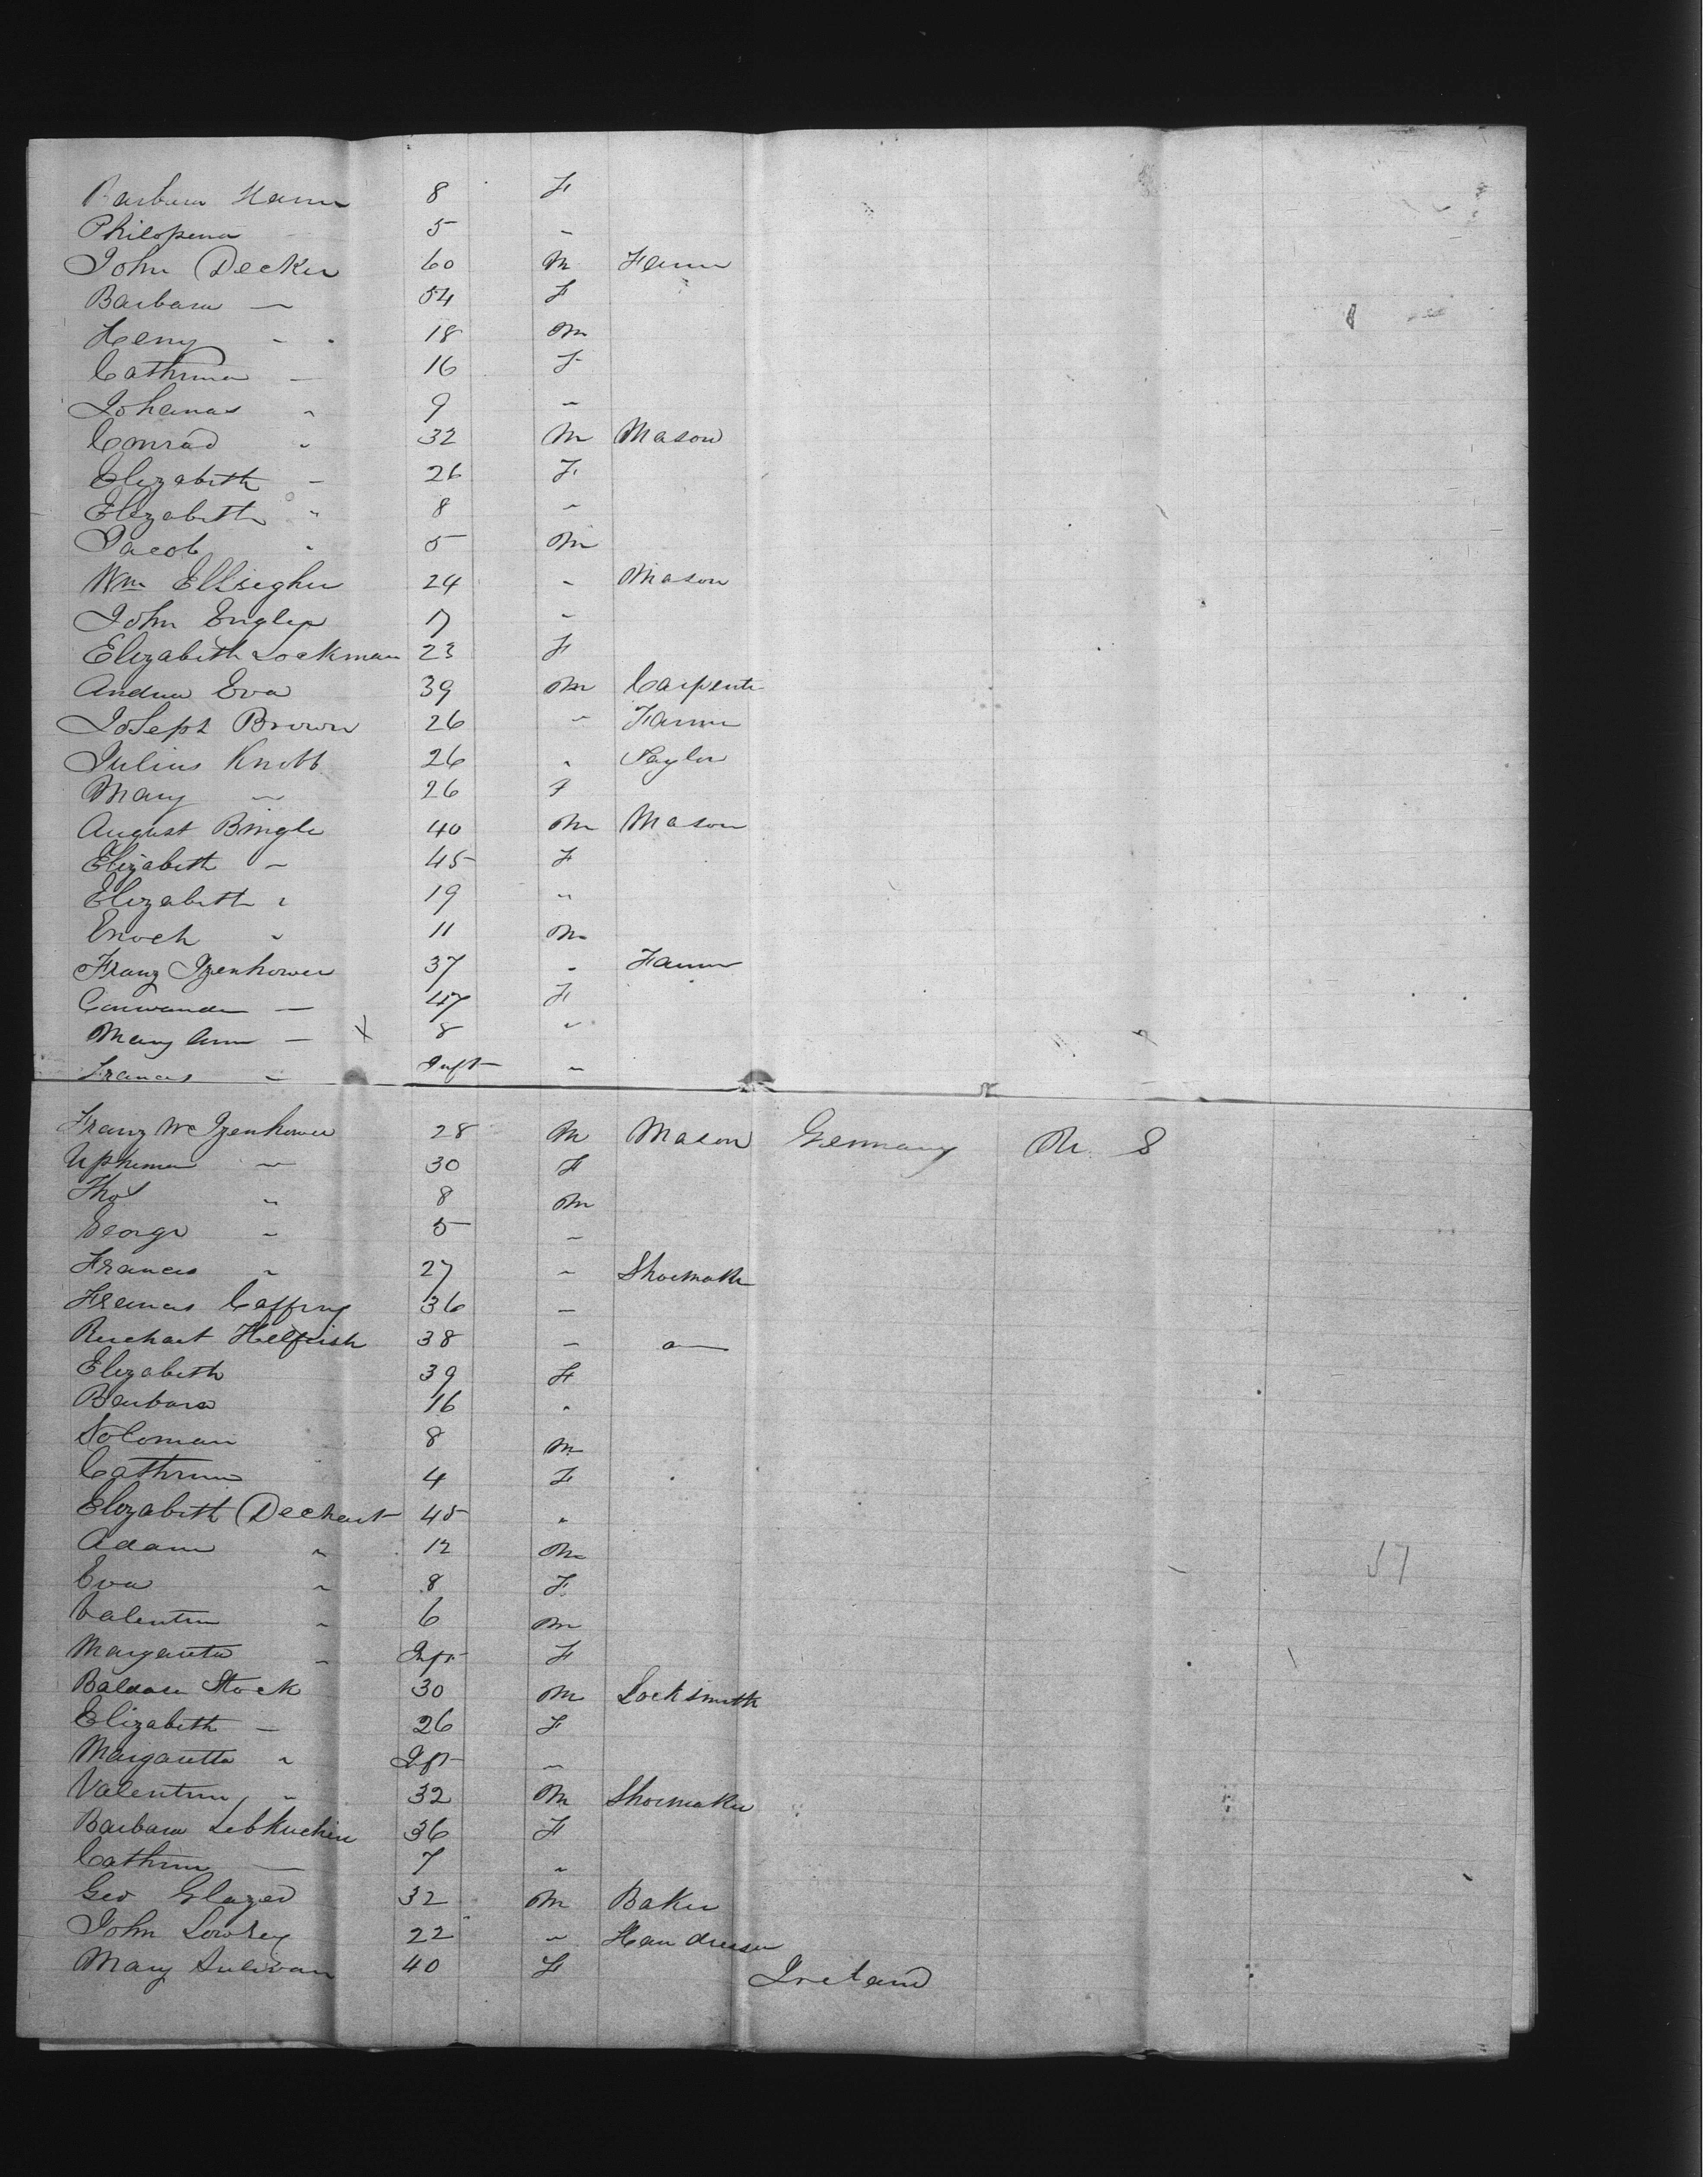 Barbara Hann 8 F
Philopena 5 "
John Decker 60 M Farmer
Barbara — 54 F
Henry " 18 M
Cathrina — 16 F
Johanas " 9 "
Conrad " 32 M Mason
Elizabeth — 26 F
Elizabeth " 8 "
Jacob " 5 M
Wm 24 " Mason
John 17 "
Elizabeth Lockman 23 F
Andrew Eva 39 M Carpenter
Joseph Brown 26 " Farmer
Julius Knobb 26 " Taylor
Mary " 26 F
August Bringle 40 M Mason
Elizabeth — 45 F
Elizabeth " 19 "
Enoch " 11 M
Franz Izenhower 37 " Farmer
— 47 F
Mary Ann — X 8 "
Frances " Inft "
Franz Mc Izenhower 28 M Mason Germany U S
Uphemia " 30 F
Thos " 8 M
George " 5 "
Francis " 27 " Shoemaker
Francis 36 —
Helfrish 38 —
Elizabeth 39 F
Barbara 16 "
Soloman 8 M
Cathrina 4 F
Elizabeth Dechart 45 "
Adam " 12 M
Eva " 8 F
Valentin " 6 M
Margareta " Inft F
Stock 30 M Locksmith
Elizabeth — 26 F
Margaretta " Inft "
Valentine " 32 M Shoemaker
Barbara Lebkuchen 36 F
Cathrina — 7 "
Geo Glazed 32 M Baker
John Lowrey 22 "
Mary Sulivan 40 F Ireland